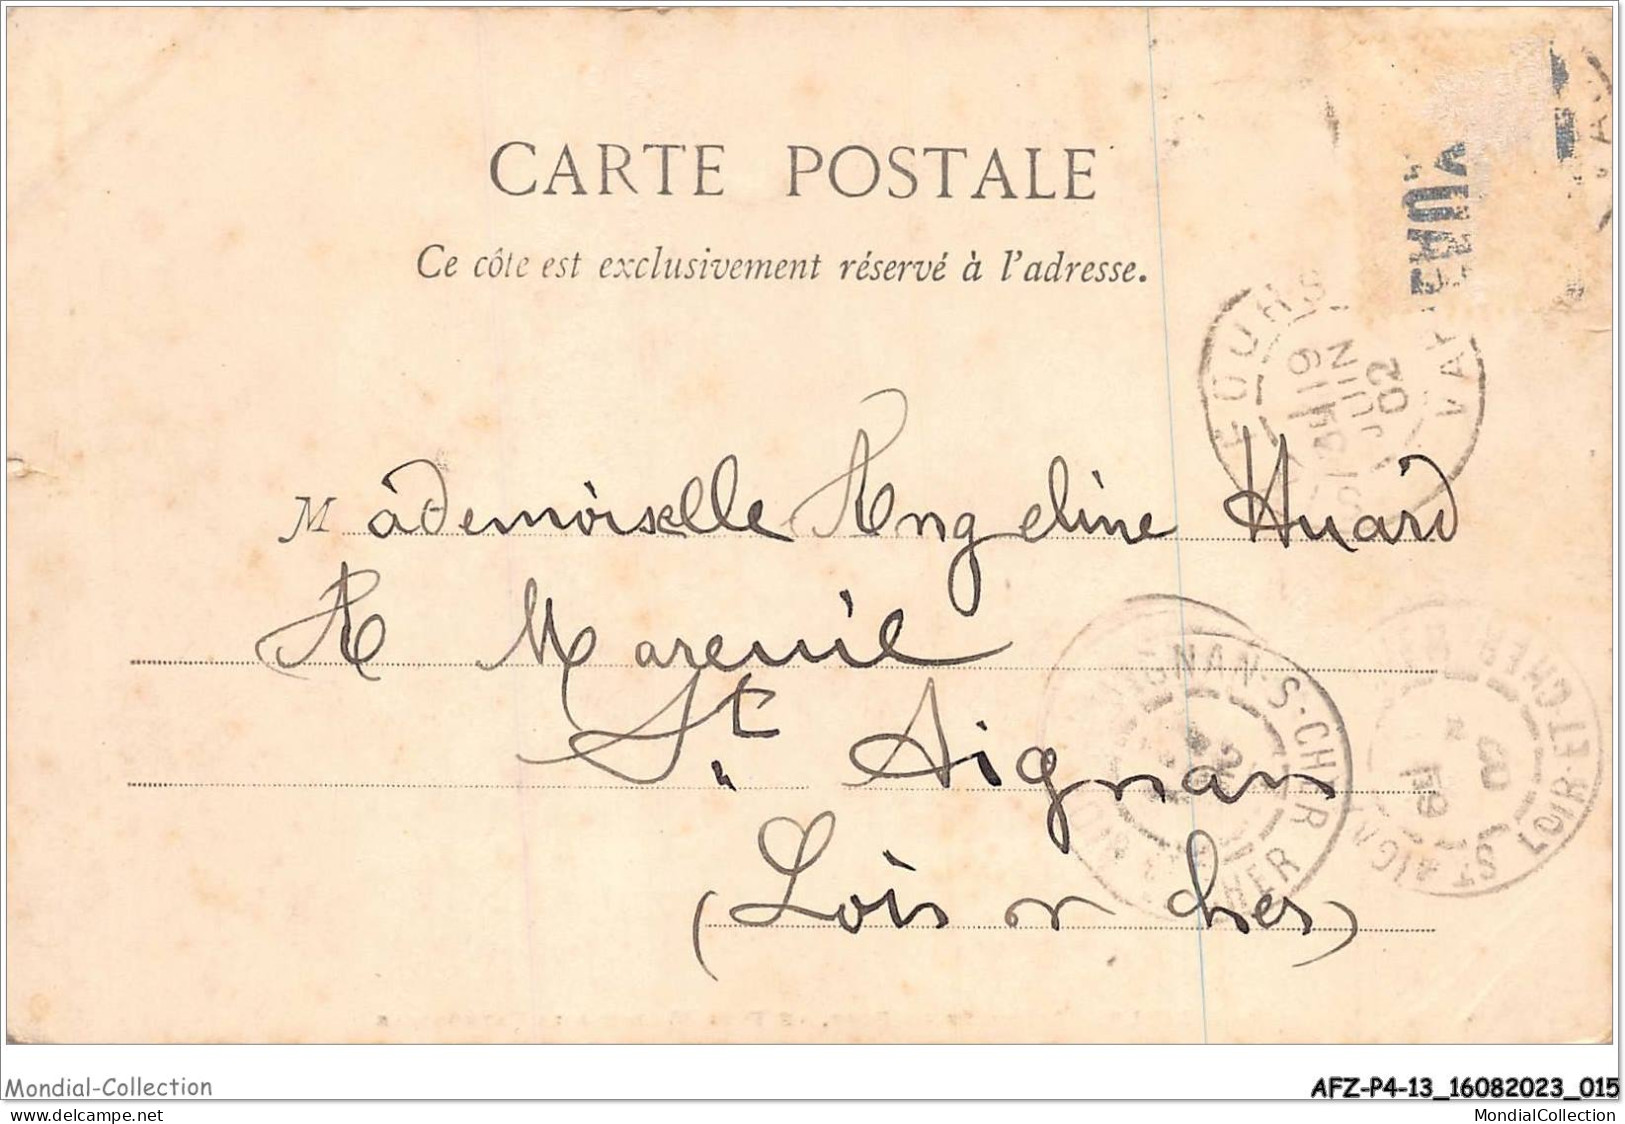 CARTE POSTALE
Ce côte est exclusivement réservé à l'adresse.
19
JUIN
02
Mademoiselle Angeline Huard
A Mareuil
St Aignan
(Loir et Cher)
AIGNAN-S-CHER
CHER
ST AIGNAN
LOIR-ET-CHER
Mondial-Collection
AFZ-P4-13_16082023_015
www.delcampe.net
MondialCollection